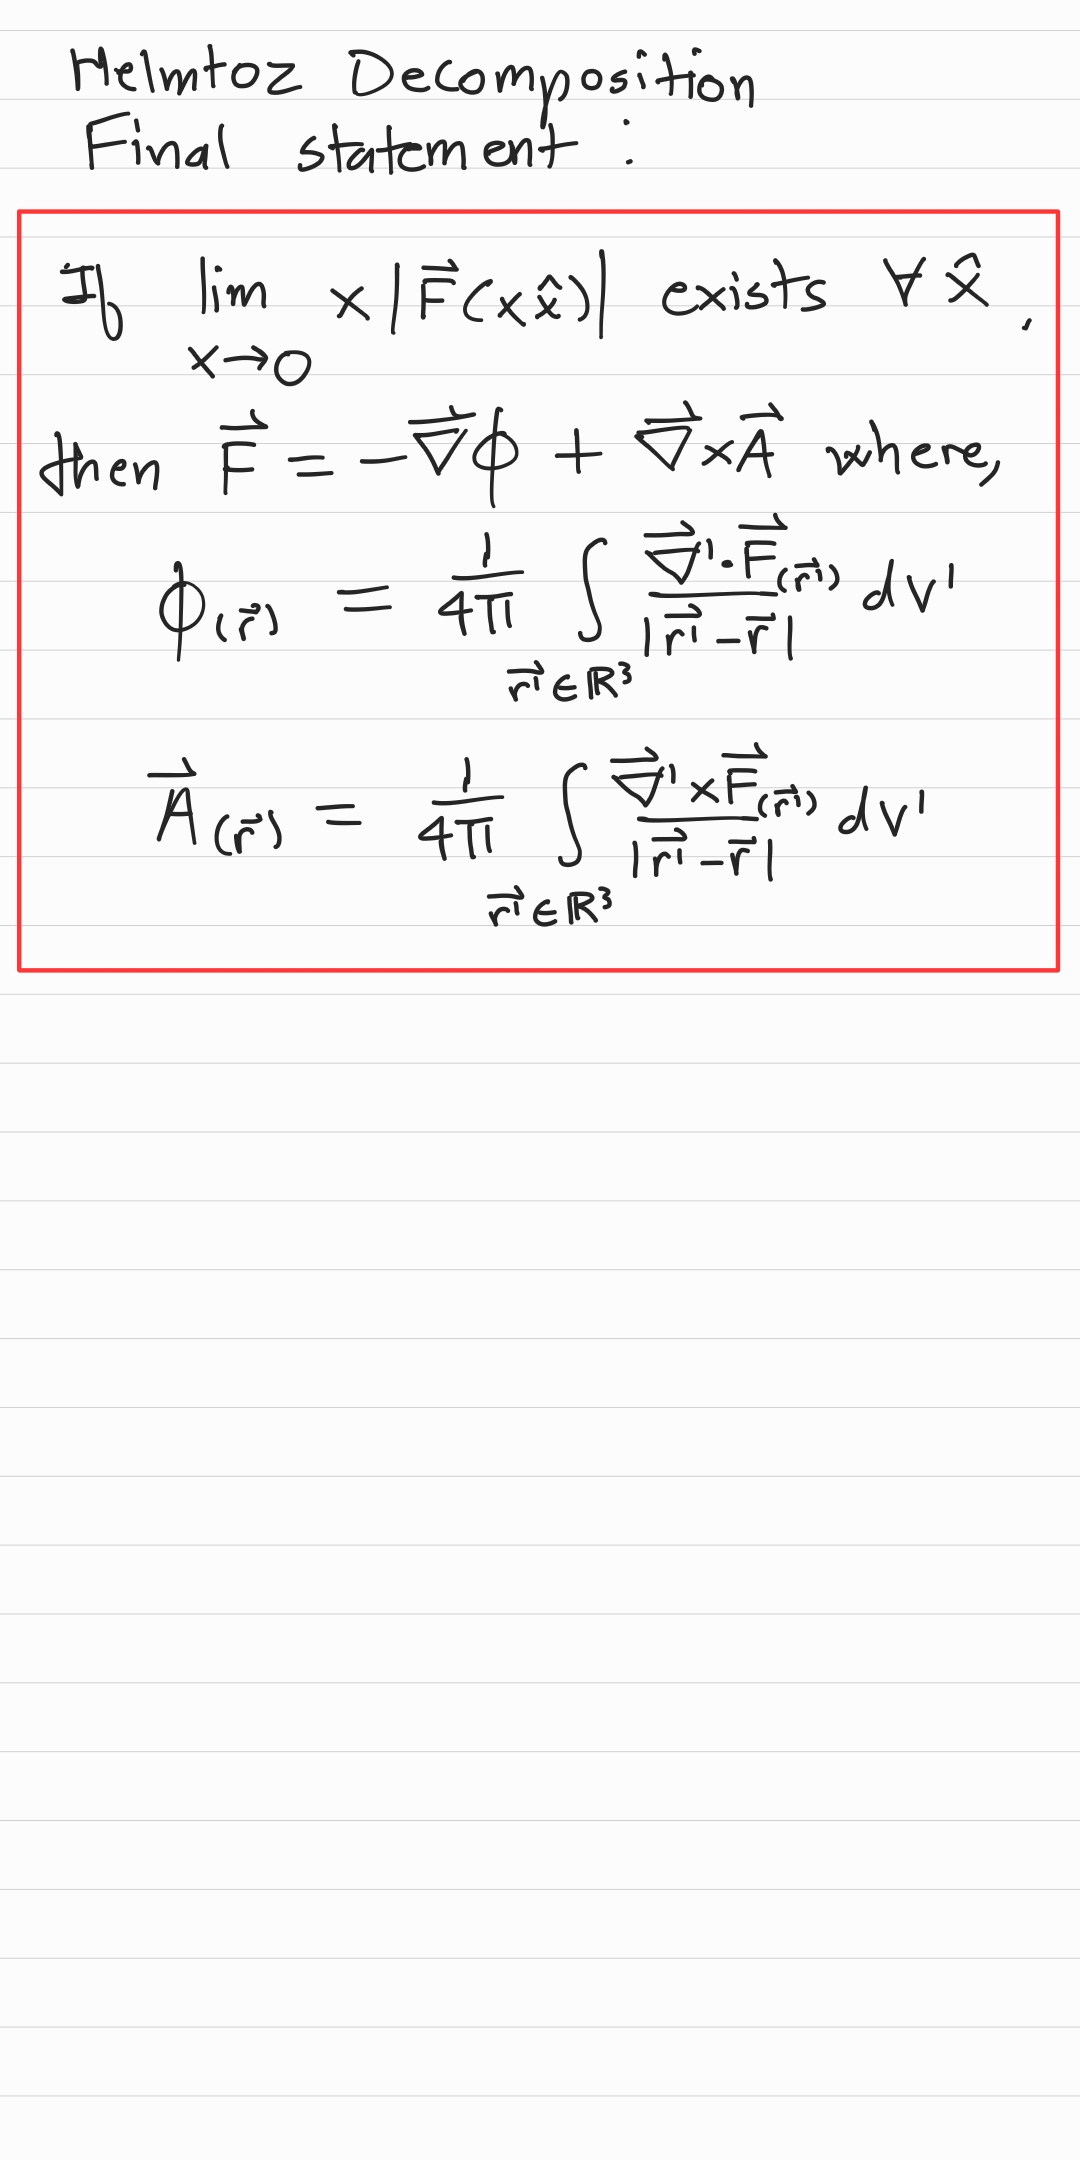 Helmtoz Decomposition
Final statement :
If lim x|F⃗(xx̂)| exists ∀ x̂ .
x→0
then F⃗ = -∇⃗ϕ + ∇⃗×A⃗ where,
ϕ(r⃗) = 1/4π ∫ ∇⃗'·F⃗(r⃗')/|r⃗'-r⃗| dv'
r⃗'∈ℝ³
A⃗(r⃗) = 1/4π ∫ ∇⃗'×F⃗(r⃗')/|r⃗'-r⃗| dv'
r⃗'∈ℝ³